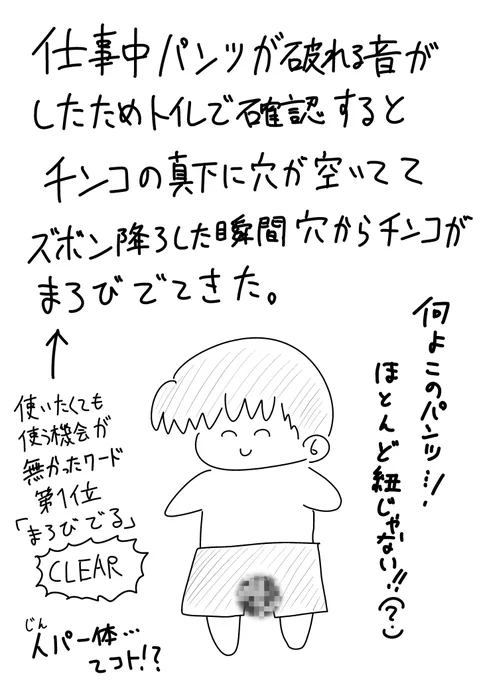 仕事中パンツが破れる音が
したためトイレで確認すると
チンコの真下に穴が空いてて
ズボン降ろした瞬間穴からチンコが
まろびでてきた。
何よこのパンツ…!
ほとんど紐じゃない!!(?)
使いたくても
使う機会が
無かったワード
第1位
「まろびでる」
CLEAR
じん
人パー体…
てコト!?